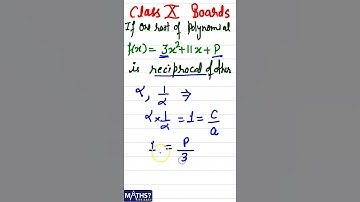 Class X Boards
If one root of polynomial
f(x) = 3x²+11x+P
is reciprocal of other
α, 1/α ⇒
α × 1/α = 1 = C/a
1 = P/3
MATHS?